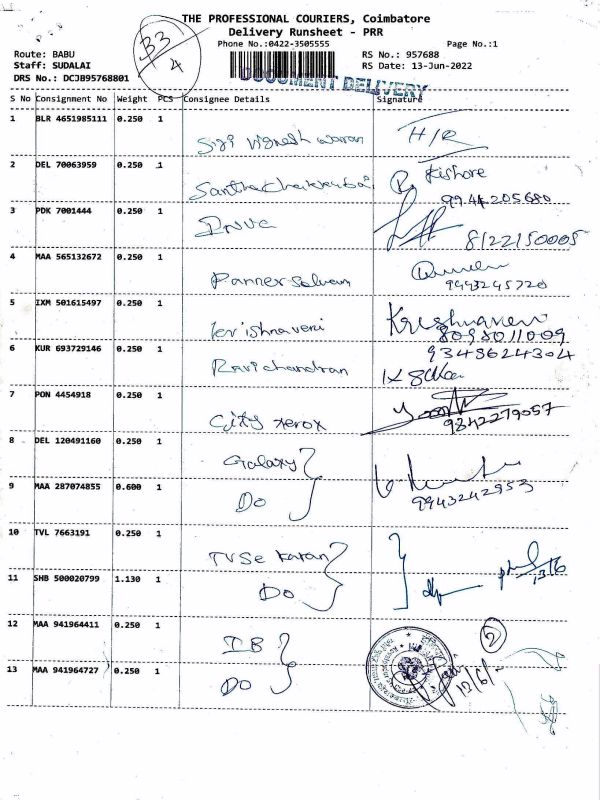 THE PROFESSIONAL COURIERS, Coimbatore
Delivery Runsheet - PRR
Phone No.:0422-3505555 Page No.:1
B3
4
Route: BABU RS No.: 957688
Staff: SUDALAI RS Date: 13-Jun-2022
DRS No.: DCJB95768801
DOCUMENT DELIVERY
S No Consignment No Weight PCS Consignee Details Signature
1 BLR 4651985111 0.250 1 H/R
2 DEL 70063959 0.250 1 Kishore
9944205680
3 PDK 7001444 0.250 1 8122150005
4 MAA 565132672 0.250 1 Panner Selvam
9443245720
5 IXM 501615497 0.250 1 Krishnaveni
8098011009
6 KUR 693729146 0.250 1 Ravichandran 9348624304
7 PON 4454918 0.250 1 City Xerox 9342279057
8 DEL 120491160 0.250 1 Galaxy
9 MAA 287074855 0.600 1 Do 9943242953
10 TVL 7663191 0.250 1
11 SHB 500020799 1.130 1 Do
12 MAA 941964411 0.250 1 IB 2
13 MAA 941964727 0.250 1 Do